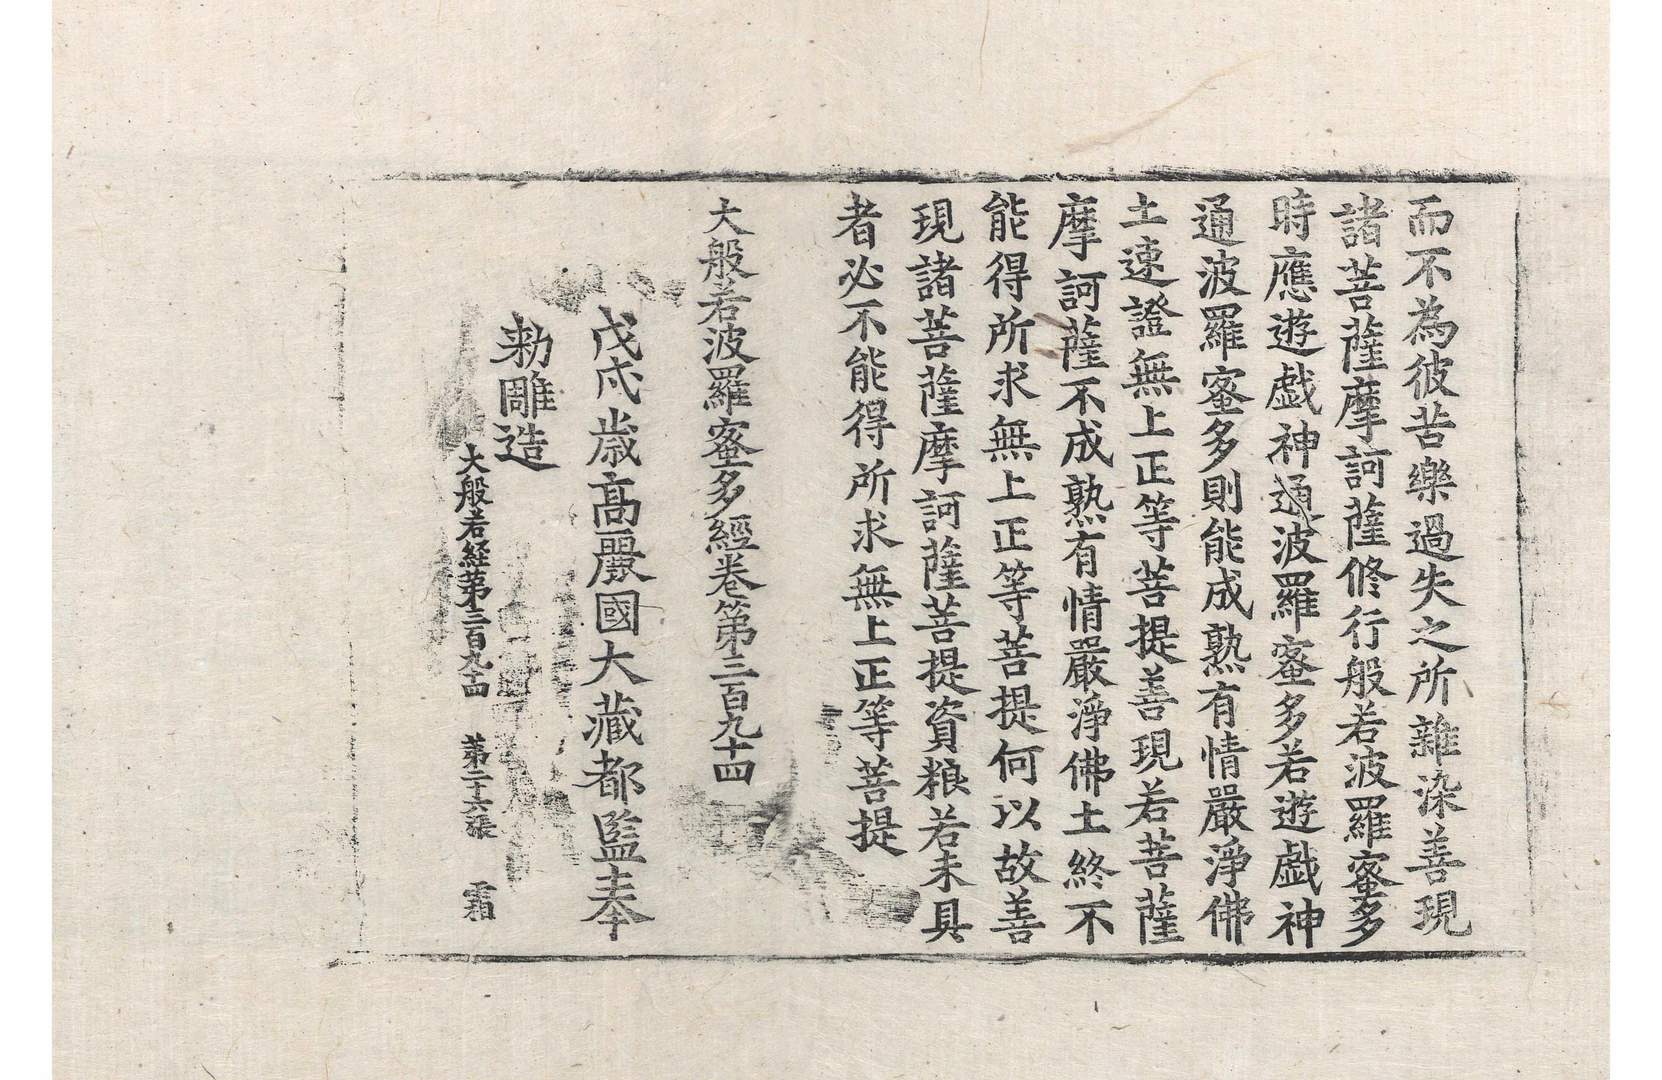 而不為彼苦樂過失之所雜染善現
諸菩薩摩訶薩修行般若波羅蜜多
時應遊戱神通波羅蜜多若遊戱神
通波羅蜜多則能成熟有情嚴淨佛
土速證無上正等菩提善現若菩薩
摩訶薩不成熟有情嚴淨佛土終不
能得所求無上正等菩提何以故善
現諸菩薩摩訶薩菩提資粮若未具
者必不能得所求無上正等菩提
大般若波羅蜜多經卷第三百九十四
戊戌歲高麗國大藏都監奉
勑雕造
大般若経苐三百九十四 苐二十六張 霜